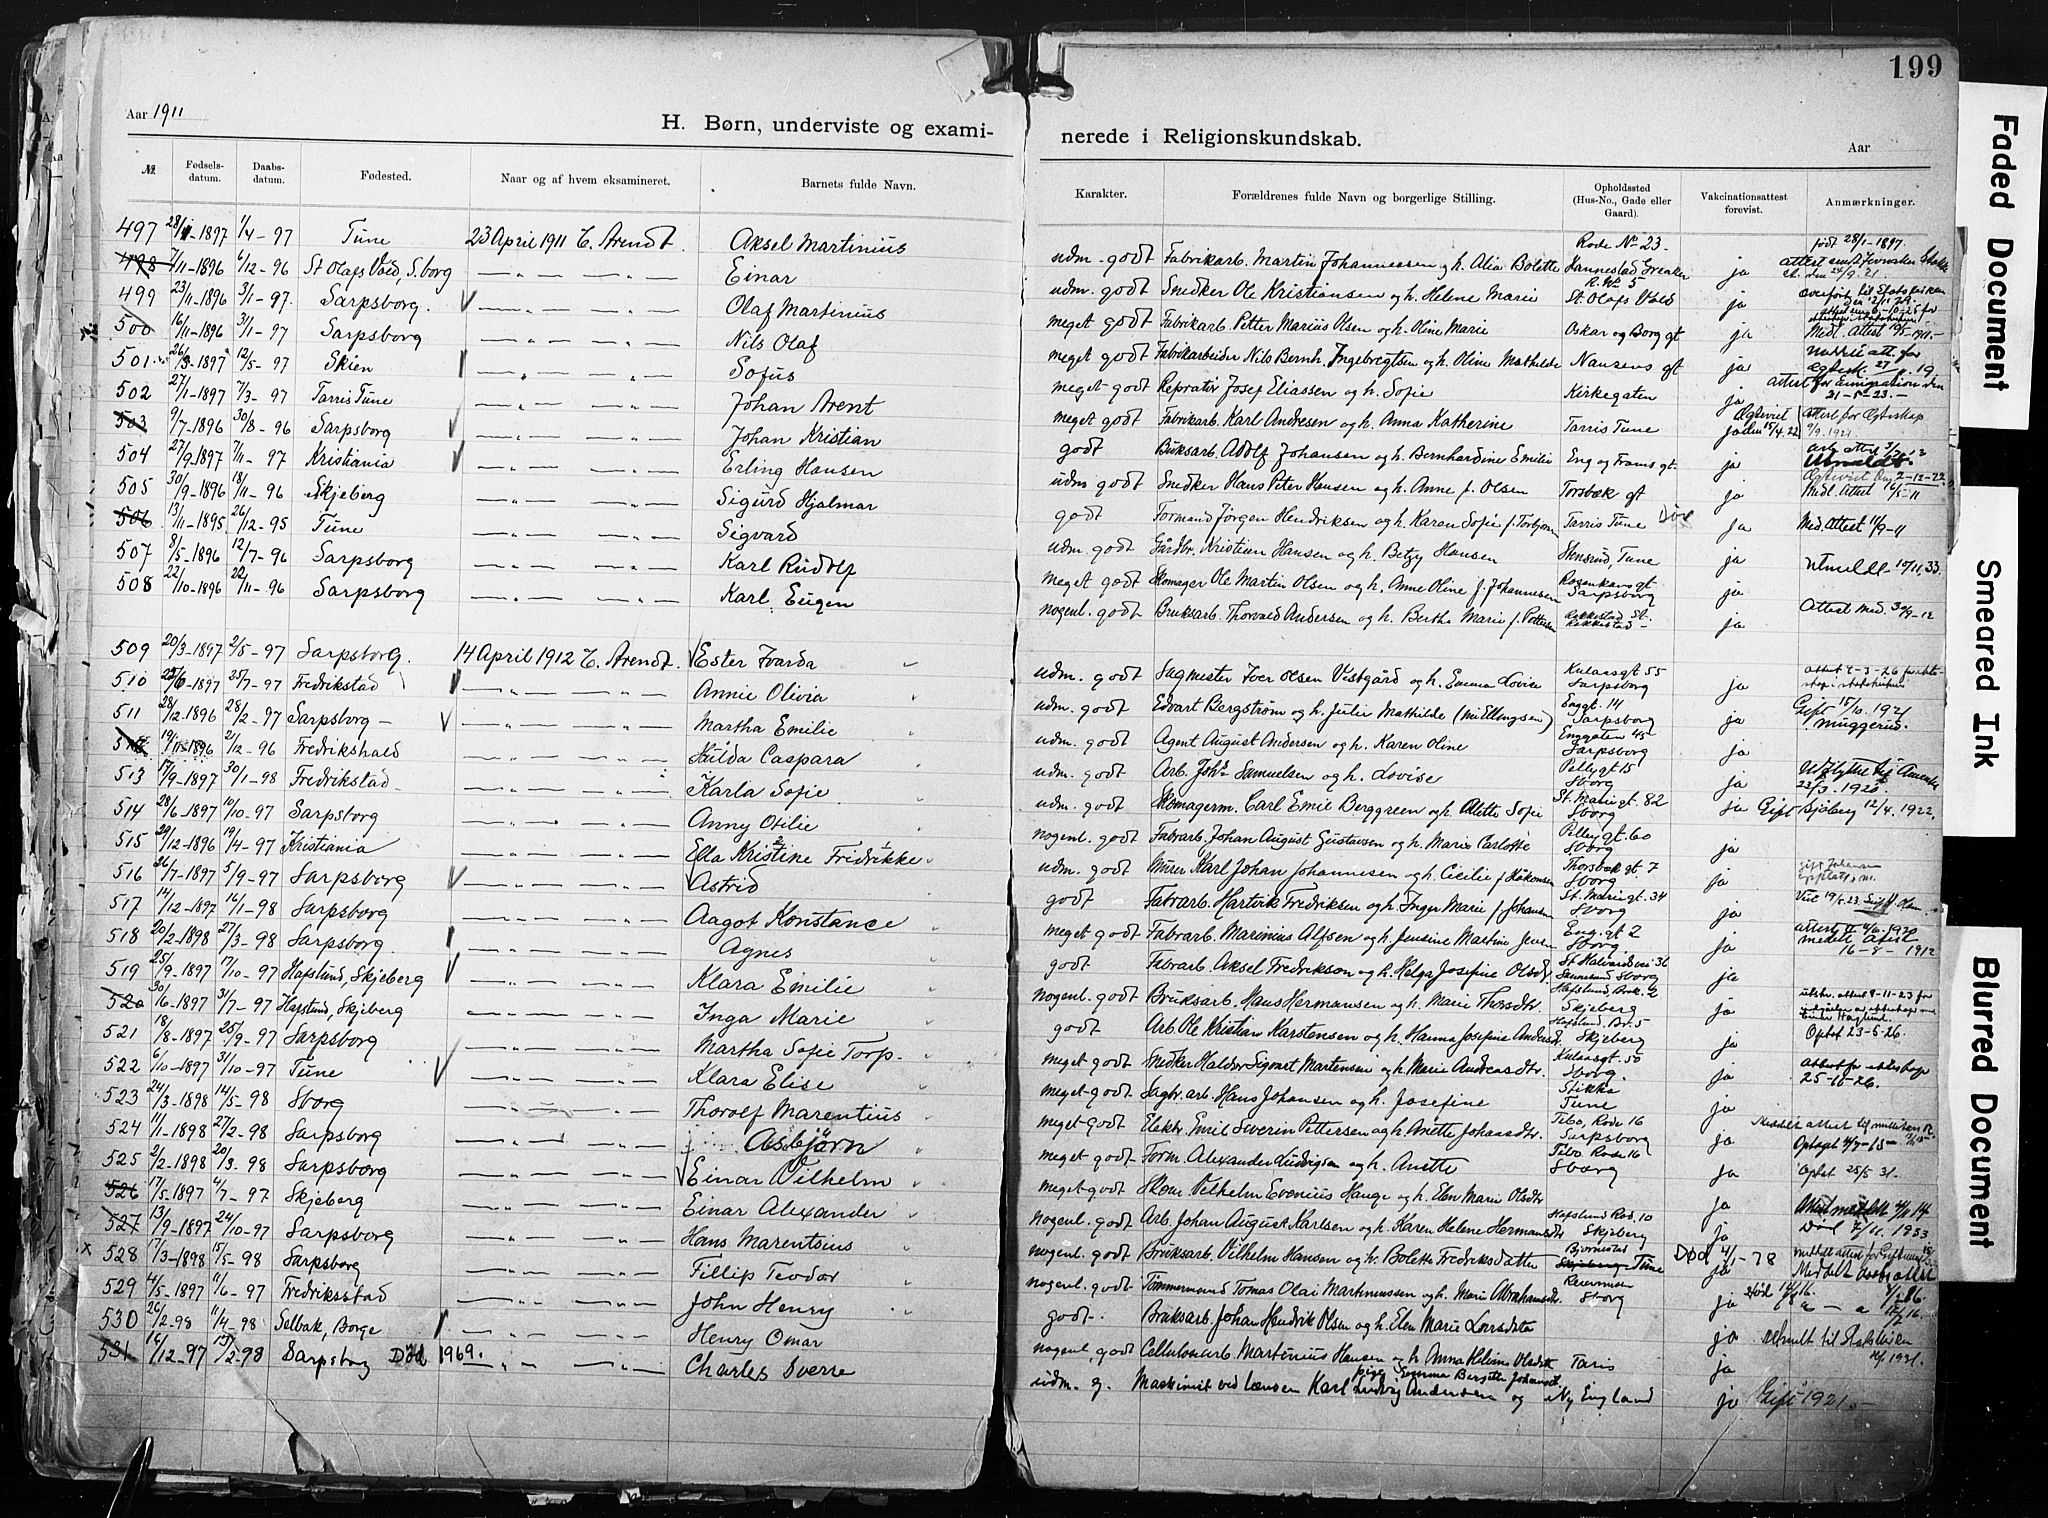 199
Aar 1911
H. Børn, underviste og exami-
nerede i Religionskundskab.
Aar
№ Fødsels-datum. Daabs-datum. Fødested. Naar og af hvem eksamineret. Barnets fulde Navn.
Karakter. Forældrenes fulde Navn og borgerlige Stilling. Opholdssted (Hus-No., Gade eller Gaard). Vakcinationsattest forevist. Anmærkninger.
497 28/1-1897 1/4-97 Tune 23 April 1911 C. Arendt. Aksel Martinius
498 7/11-1896 6/12-96 St Olafs Vold, S.borg Einar
499 23/11-1896 3/1-97. Sarpsborg. Olaf Martinius
500 16/11-1896 3/1-97 Sarpsborg Nils Olaf
501 26/3-1897 12/5-97 Skien Sofus
502 27/1-1897 7/3-97 Tarris Tune Johan Arent
503 9/7-1896 30/8-96 Sarpsborg Johan Kristian
504 27/9-1897 7/11-97 Kristiania Erling Hansen
505 30/9-1896 18/11-96 Skjeberg Sigurd Hjalmar
506 13/11-1895 26/12-95 Tune Sigvard
507 8/5-1896 12/7-96 Sarpsborg Karl Rudolf
508 22/10-1896 22/11-96 Sarpsborg Karl Eugen
509 20/3-1897 2/5-97 Sarpsborg. 14 April 1912 C. Arendt. Ester Ivarda
510 25/6-1897 25/7-97 Fredrikstad Annie Olivia
511 28/12-1896 28/2-97 Sarpsborg- Martha Emilie
19/11-1896 2/12-96 Fredrikshald Hulda Caspara
513 17/9-1897 30/1-98 Fredrikstad- Karla Sofie
514 28/6-1897 10/10-97 Sarpsborg Anny Otilie
515 29/12-1896 19/4-97 Kristiania Ella Kristine Fridrikke
516 26/7-1897 5/9-97 Sarpsborg Astrid
517 14/12-1897 16/1-98 Sarpsborg Aagot Konstance
518 20/2-1898 27/3-98 Sarpsborg. Agnes
519 25/9-1897 17/10-97 Hafslund, Skjeberg Klara Emilie
520 30/6-1897 31/7-97 Hafslund, Skjeberg Inga Marie
521 18/8-1897 25/9-97 Sarpsborg Martha Sofie Torp
522 6/10-1897 31/10-97 Tune Klara Elise
523 24/3-1898 14/5-98 Sborg Thorolf Marentius
524 11/1-1898 27/2-98 Sarpsborg Asbjörn
525 2/2-1898 20/3-98 Sarpsborg Einar Vilhelm
526 17/5-1897 4/7-97 Skjeberg Einar Alexander
527 13/9-1897 24/10-97 Sarpsborg Hans Marentsius
x 528 7/3-1898 15/5-98 Sarpsborg Fillip Teodor
529 4/5-1897 11/6-97 Fredriksstad John Henry
530 26/2-98 11/4-98 Selbak, Borge Henry Omar
531 16/12-97 13/2-98 Sarpsborg Död 1969. Charles Sverre
udm. godt Fabrikarb. Martin Johannessen og h. Alia Bolette Rode No 23- Hannestad Greaker ja født 28/1-1897.
udm. godt Snedker Ole Kristiansen og h. Helene Marie R. No 5 St. Olafs Vold ja overført til Statskirken
meget godt Fabrikarb. Petter Marius Olsen og h. Oline Marie Oskar og Borg gt ja Medl. Attest
meget godt Fabrikarbeider Nils Bernh. Ingebregtsen og h. Oline Mathilde Nansens gt ja
meget godt Repratør Josef Eliassen og h. Sofie Kirkegaten ja attest for Emigration den 21-5-23.-
meget godt Fabrikarb. Karl Andresen og h. Anna Katherine Tarris Tune ja Ægteviet den 15/4.22 attest for Ægteskap 9/9.1921
godt Bruksarb. Adolf Johansen og h. Bernhardine Emilie Eng og Frams gt. ja Utmeldt.
udm godt Snedker Hans Peter Hansen og h. Anne f. Olsen Torsbæk gt ja Medl. Attest 16/5-11
godt Formand Jørgen Hendriksen og h. Karen Sofie f. Torbjørn Tarris Tune Död ja Med. Attest 11/9-11
udm. godt Gårdbr. Kristian Hansen og h. Betzy Hansen Stensrud, Tune ja Utmeldt 10/11.33.
meget godt Skomager Ole Martin Olsen og h. Anne Oline f. Johannesen Rosenkransgt Sarpsborg ja
nogenl. godt Bruksarb. Thorvald Andersen og h. Berthe Marie f. Pettersen Rakkestad St. Rakkestad- ja Attest Med. 30/9-12
udm. godt Sagmester Iver Olsen Vistgård og h. Emma Lovise Kulaasgt 55 Sarpsborg ja
udm. godt Edvart Bergstrøm og h. Julie Mathilde (nu Ellingsen) Enggt. 14 Sarpsborg ja Gift 15/10.1921 Muggerud.
udm. godt Agent August Andersen og h. Karen Oline Enggaten 45 Sarpsborg ja
udm. godt Arb. Johs Samuelsen og h. Lovise Pellygt 15 Sborg ja Udflyttet til Amerika 22/3.1920
udm. godt Skomagerm. Carl Emil Berggreen og h. Alette Sofie St. Mariegt. 82 Sborg ja Gift Sjöberg 12/4.1922.
nogenl. godt Fabrarb. Johan August Gustavsen og h. Marie Carlotte Pellygt. 60 Sborg ja
udm. godt Murer Karl Johan Johannesen og h. Cecilie f. Håkonsen Thorsbæk gt 7 Sborg ja gift Johansen
godt Fabrarb. Hartvik Fredriksen og h. Inger Marie f. Johansen St. Mariegt. 34 Sborg ja
meget godt Fabrarb. Marinius Alfsen og h. Jensine Martine Eng. gt 2 Sborg ja meddl Attest 16-8-1912
godt Fabrarb Aksel Fredrikson og h. Helga Josefine Olsdt. St Halvardsvei 36 Sborg ja
nogenl. godt Bruksarb. Hans Hermansen og h. Marie Thorsdtr. Hafslund Brok. 2 Skjeberg ja
godt Arb. Ole Kristian Karstensen og h. Hanna Josefine Hafslund. Br. 5 Skjeberg ja Optat 23-6-26.
meget godt Snedker Haldor Sigvart Martensen og h. Marie Andreasdtr. Kulaasgt. 50 Sborg. ja attest for ekteskap 25-10-26.
meget godt Sagbr. arb. Hans Johansen og h. Josefine Stikka Tune ja
meget godt Elektr. Emil Severin Pettersen og h. Anette Johansdtr. Tebo, Rode 16 Sarpsborg ja
meget godt- Form. Alexander Ludvigsen og h. Anette Tebo Rode 16 Sborg ja Optat 25/5 31.
meget godt Skom Vilhelm Evenius Hauge og h. Elen Marie Olsdtr ja
nogenl. godt Arb. Johan August Karlsen og h. Karen Helene Hermansdtr Hafslund Rod. 10 Skjeberg ja Död 7/11.1953
nogenl. godt Bruksarb. Vilhelm Hansen og h. Bolette Fredriksdatter Bjørnstad Skjeberg Tune Död 4/1-78 ja
nogenl. godt Tømmermand Tomas Olai Martinussen og h. Marie Abrahamsdtr. Sborg ja
godt. Bruksarb. Johan Hendrik Olsen og h. Elen Marie ja utmelt til Statskirken
nogenl. godt Cellulosearb. Martinius Hansen og h. Anna Helvine Olsdtr Taris ja
udm. g. Maskinist ved Lensen Karl Ludvig Andersen og pige Emma Bergitte Johansdt Ny England ja Gift 1921.-
Faded Document
Smeared Ink
Blurred Document